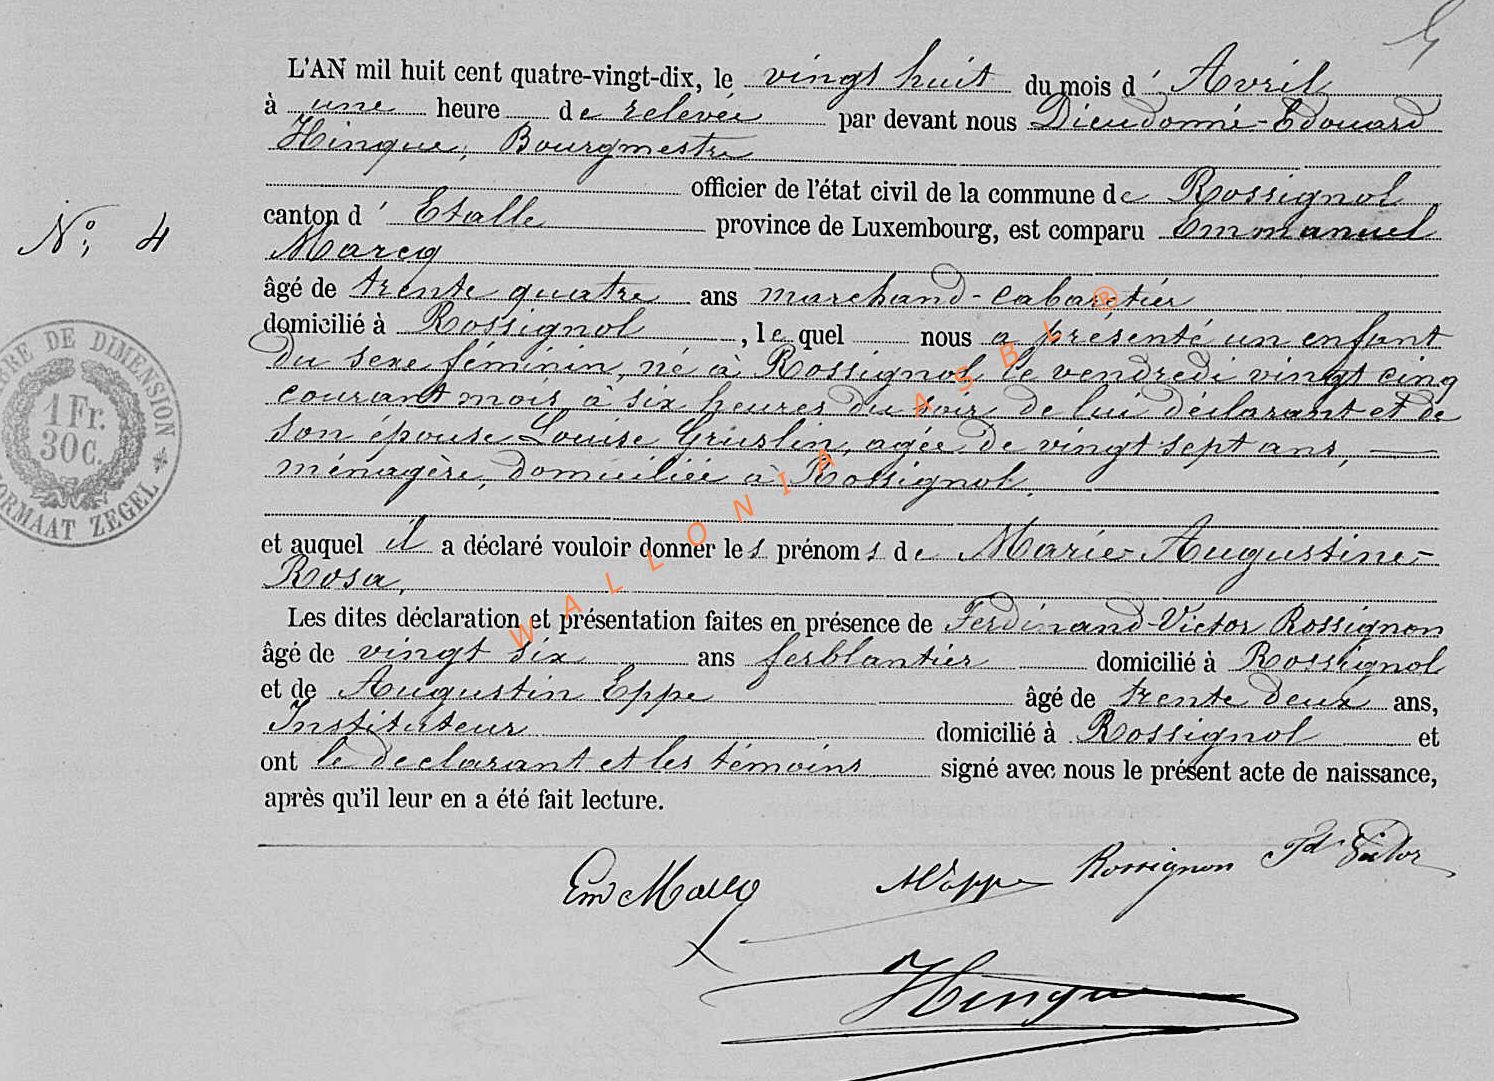 L'AN mil huit cent quatre-vingt-dix, le vingt huit du mois d' Avril
à une heure de relevée par devant nous Dieudonné-Edouard
Hinque, Bourgmestre
officier de l'état civil de la commune de Rossignol
canton d' Etalle province de Luxembourg, est comparu Emmanuel
Marcq
âgé de trente quatre ans marchand-cabaretier
domicilié à Rossignol, lequel nous a présenté un enfant
du sexe féminin, né à Rossignol le vendredi vingt cinq
courant mois, à six heures du soir, de lui déclarant et de
son épouse Louise Gruslin, agée de vingt sept ans,
ménagère, domiciliée à Rossignol.
et auquel il a déclaré vouloir donner les prénoms de Marie-Augustine-
Rosa,
Les dites déclaration et présentation faites en présence de Ferdinand-Victor Rossignon
âgé de vingt six ans ferblantier domicilié à Rossignol
et de Augustin Eppe âgé de trente deux ans,
Instituteur domicilié à Rossignol et
ont le declarant et les témoins signé avec nous le présent acte de naissance,
après qu'il leur en a été fait lecture.
N°, 4
DE DIMENSION
1 Fr.
30c.
FORMAAT ZEGEL
WALLONIA ASBL ®
Em Marcq Rossignon Fd Victor
Hinque